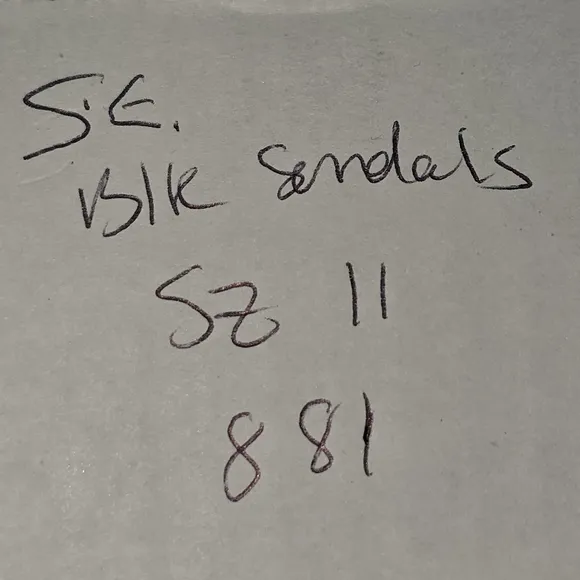 S.E.
Blk Sandals
SZ 11
881